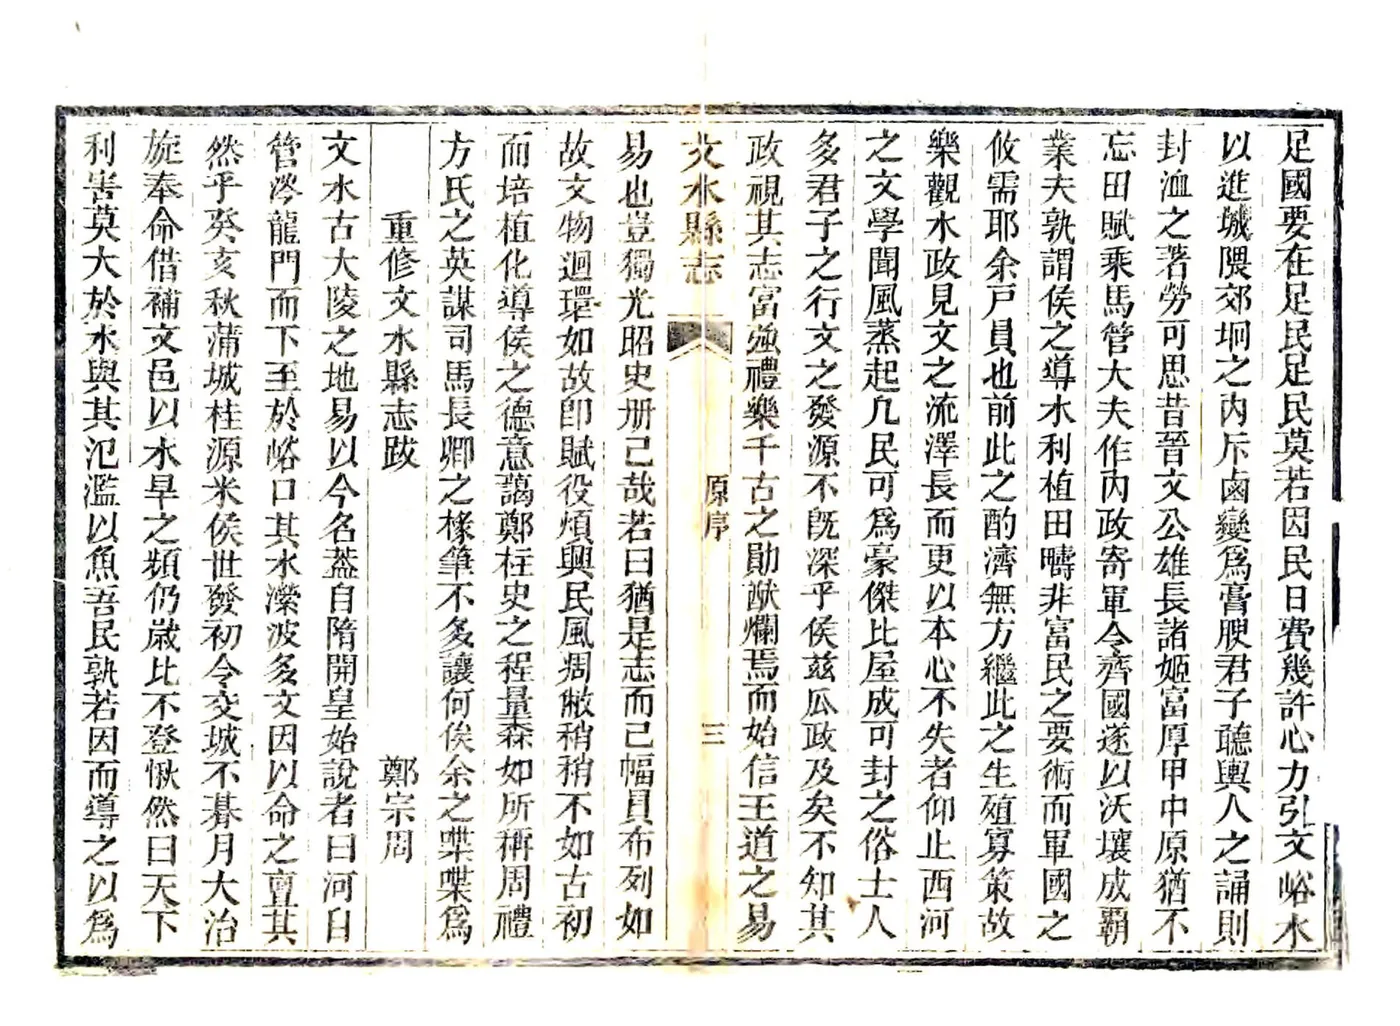 足國要在足民足民莫若因民日費幾許心力引文峪水
以進城隈郊坰之內斥鹵變爲膏腴君子聽輿人之誦則
封洫之著勞可思昔晉文公雄長諸姬富厚甲中原猶不
忘田賦乘馬管大夫作內政寄軍令齊國遂以沃壤成霸
業夫孰謂侯之導水利植田疇非富民之要術而軍國之
攸需耶余戶員也前此之酌濟無方繼此之生殖寡策故
樂觀水政見文之流澤長而更以本心不失者仰止西河
之文學聞風蒸起凡民可爲豪傑比屋成可封之俗士人
多君子之行文之發源不旣深乎侯茲瓜政及矣不知其
政視其志富強禮樂千古之勛猷爛焉而始信王道之易
文水縣志
原序
三
易也豈獨光昭史册己哉若曰猶是志而已幅員布列如
故文物迴環如故卽賦役煩興民風凋敝稍稍不如古初
而培植化導侯之德意藹鄭柱史之程量森如所稱周禮
方氏之英謀司馬長卿之椽筆不多讓何俟余之喋喋爲
重修文水縣志跋
鄭宗周
文水古大陵之地易以今名蓋自隋開皇始說者曰河自
管涔龍門而下至於峪口其水濼波多文因以命之亶其
然乎癸亥秋蒲城桂源米侯世發初令交城不朞月大治
旋奉命借補文邑以水旱之頻仍歲比不登愀然曰天下
利害莫大於水與其氾濫以魚吾民孰若因而導之以爲